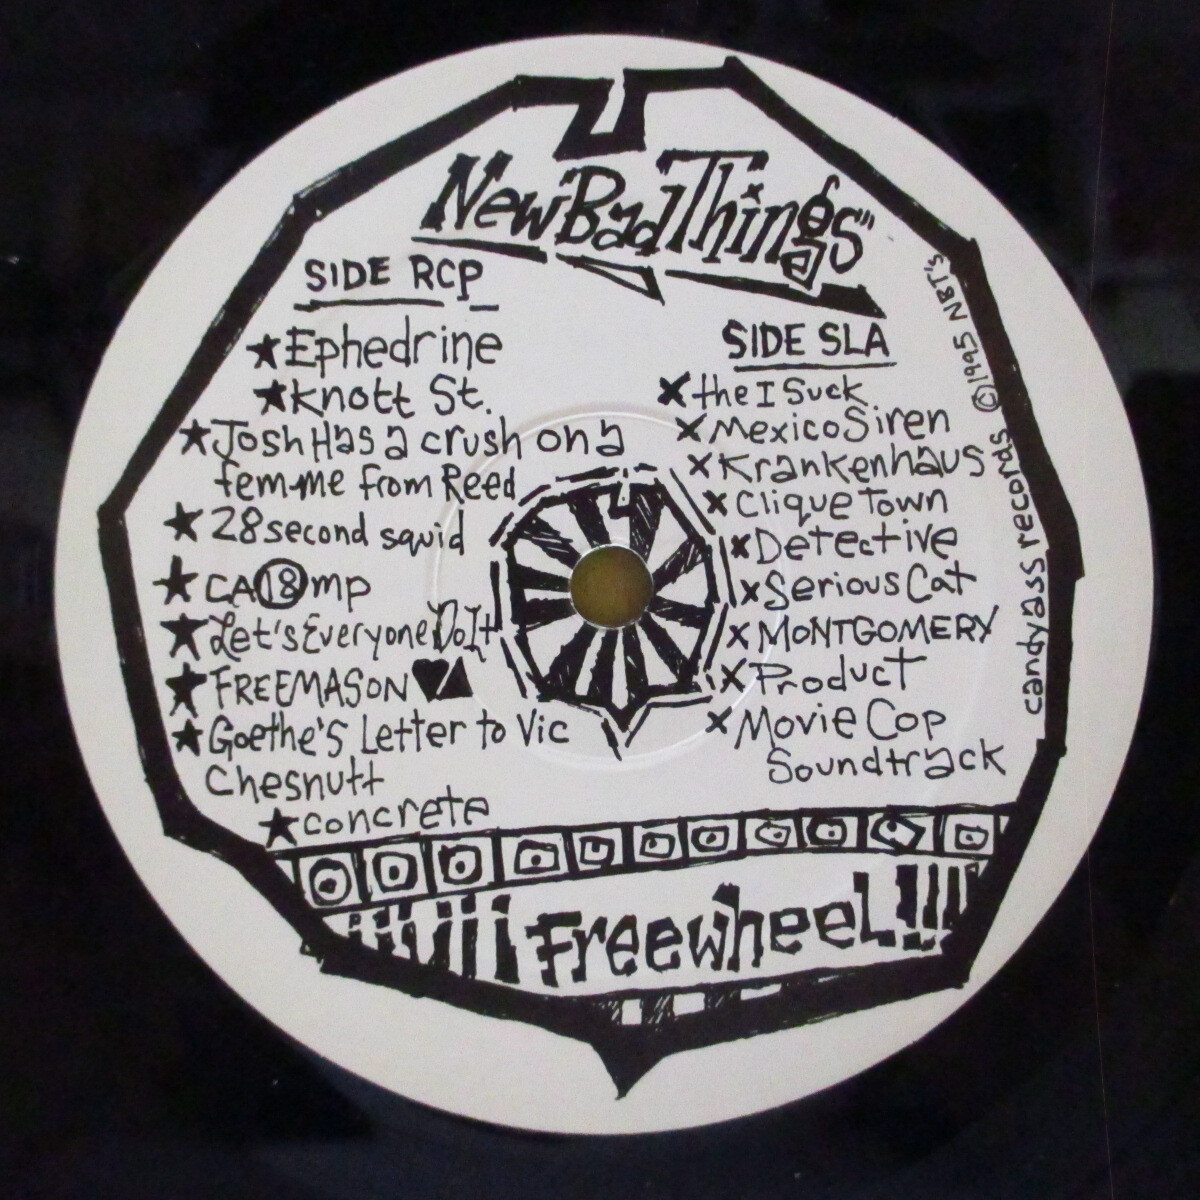 New Bad Things
SIDE RCP
★Ephedrine
★Knott St.
★Josh Has a crush on a
femme from Reed
★28 second squid
★CA⑱mp
★Let's Everyone Do It
★FREEMASON
★Goethe's Letter to Vic
Chesnutt
★concrete
SIDE SLA
×the I Suck
×Mexico Siren
×Krankenhaus
×Clique Town
×Detective
×Serious Cat
×MONTGOMERY
×Product
×Movie Cop
Soundtrack
candyass records ©1995 NBT's
Freewheel!!!